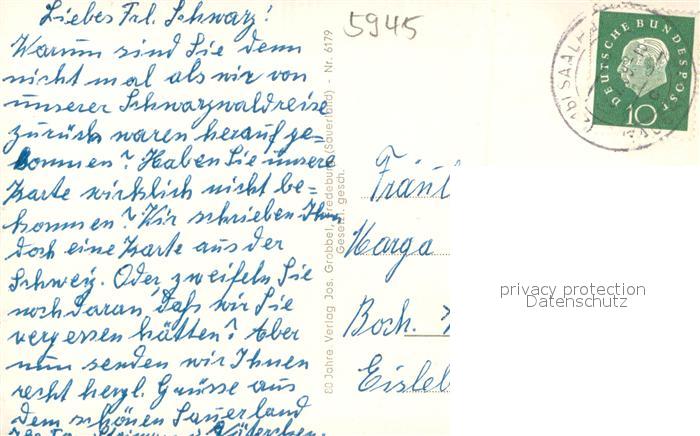 Liebes Frl. Schwarz!
Warum sind Sie denn
nicht mal als wir von
unserer Schwarzwaldreise
zurück waren herauf ge=
kommen? Haben Sie unsere
Karte wirklich nicht be=
kommen? Wir schrieben Ihnen
doch eine Karte aus der
Schweiz. Oder zweifeln Sie
noch daran, daß wir Sie
vergessen hätten? Aber
nun senden wir Ihnen
recht herzl. Grüsse aus
dem schönen Sauerland
80 Jahre Verlag Jos. Grobbel, Fredeburg (Sauerland) - Nr. 6179
Gesetzl. gesch.
5945
DEUTSCHE BUNDESPOST
10
Fräul
Marga
Boch.
Eisleb
privacy protection
Datenschutz